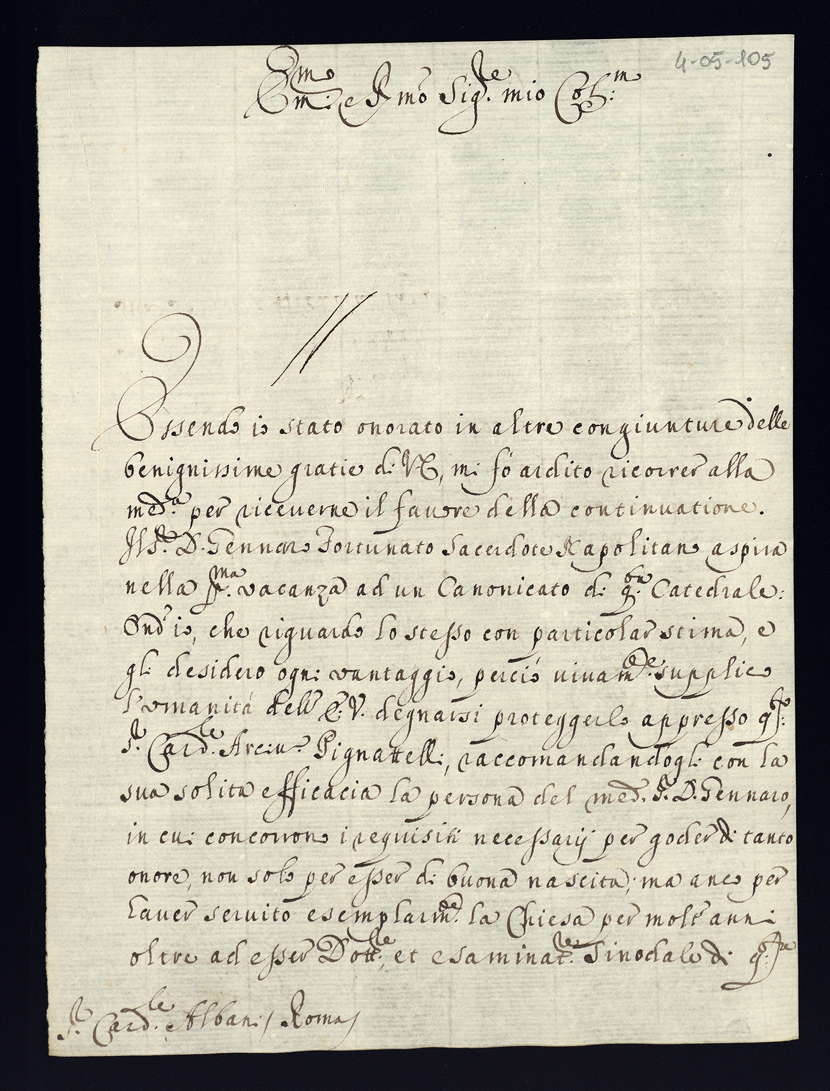 4-05-105
Em.mo e R.mo Sig.re mio Col.mo
Essendo io stato onorato in altre congiunture delle
benignissime gratie di VE, mi fò ardito ricorrer alla
med.a per riceverne il favore della continuatione.
Il S.r D. Gennaro Fortunato Sacerdote Napolitano aspira
nella p.ma vacanza ad un Canonicato di q.ta Catedrale:
Ond'io, che riguardo lo stesso con particolar stima, e
gli desidero ogni vantaggio, perciò vivam.te supplico
l'umanità dell'E.V. degnarsi proteggerlo appresso q.sto
S.r Card.le Arciv.o Pignattelli, raccomandandogli con la
sua solita efficacia la persona del med.o S.r D. Gennaro,
in cui concorrono i requisiti necessarij per goder di tanto
onore, non solo per esser di buona nascita, ma anco per
haver servito esemplarm.te la Chiesa per molt'anni
oltre ad esser Dott.re, et esaminat.re Sinodale di q.sta
S.r Card.le Albani / Roma /